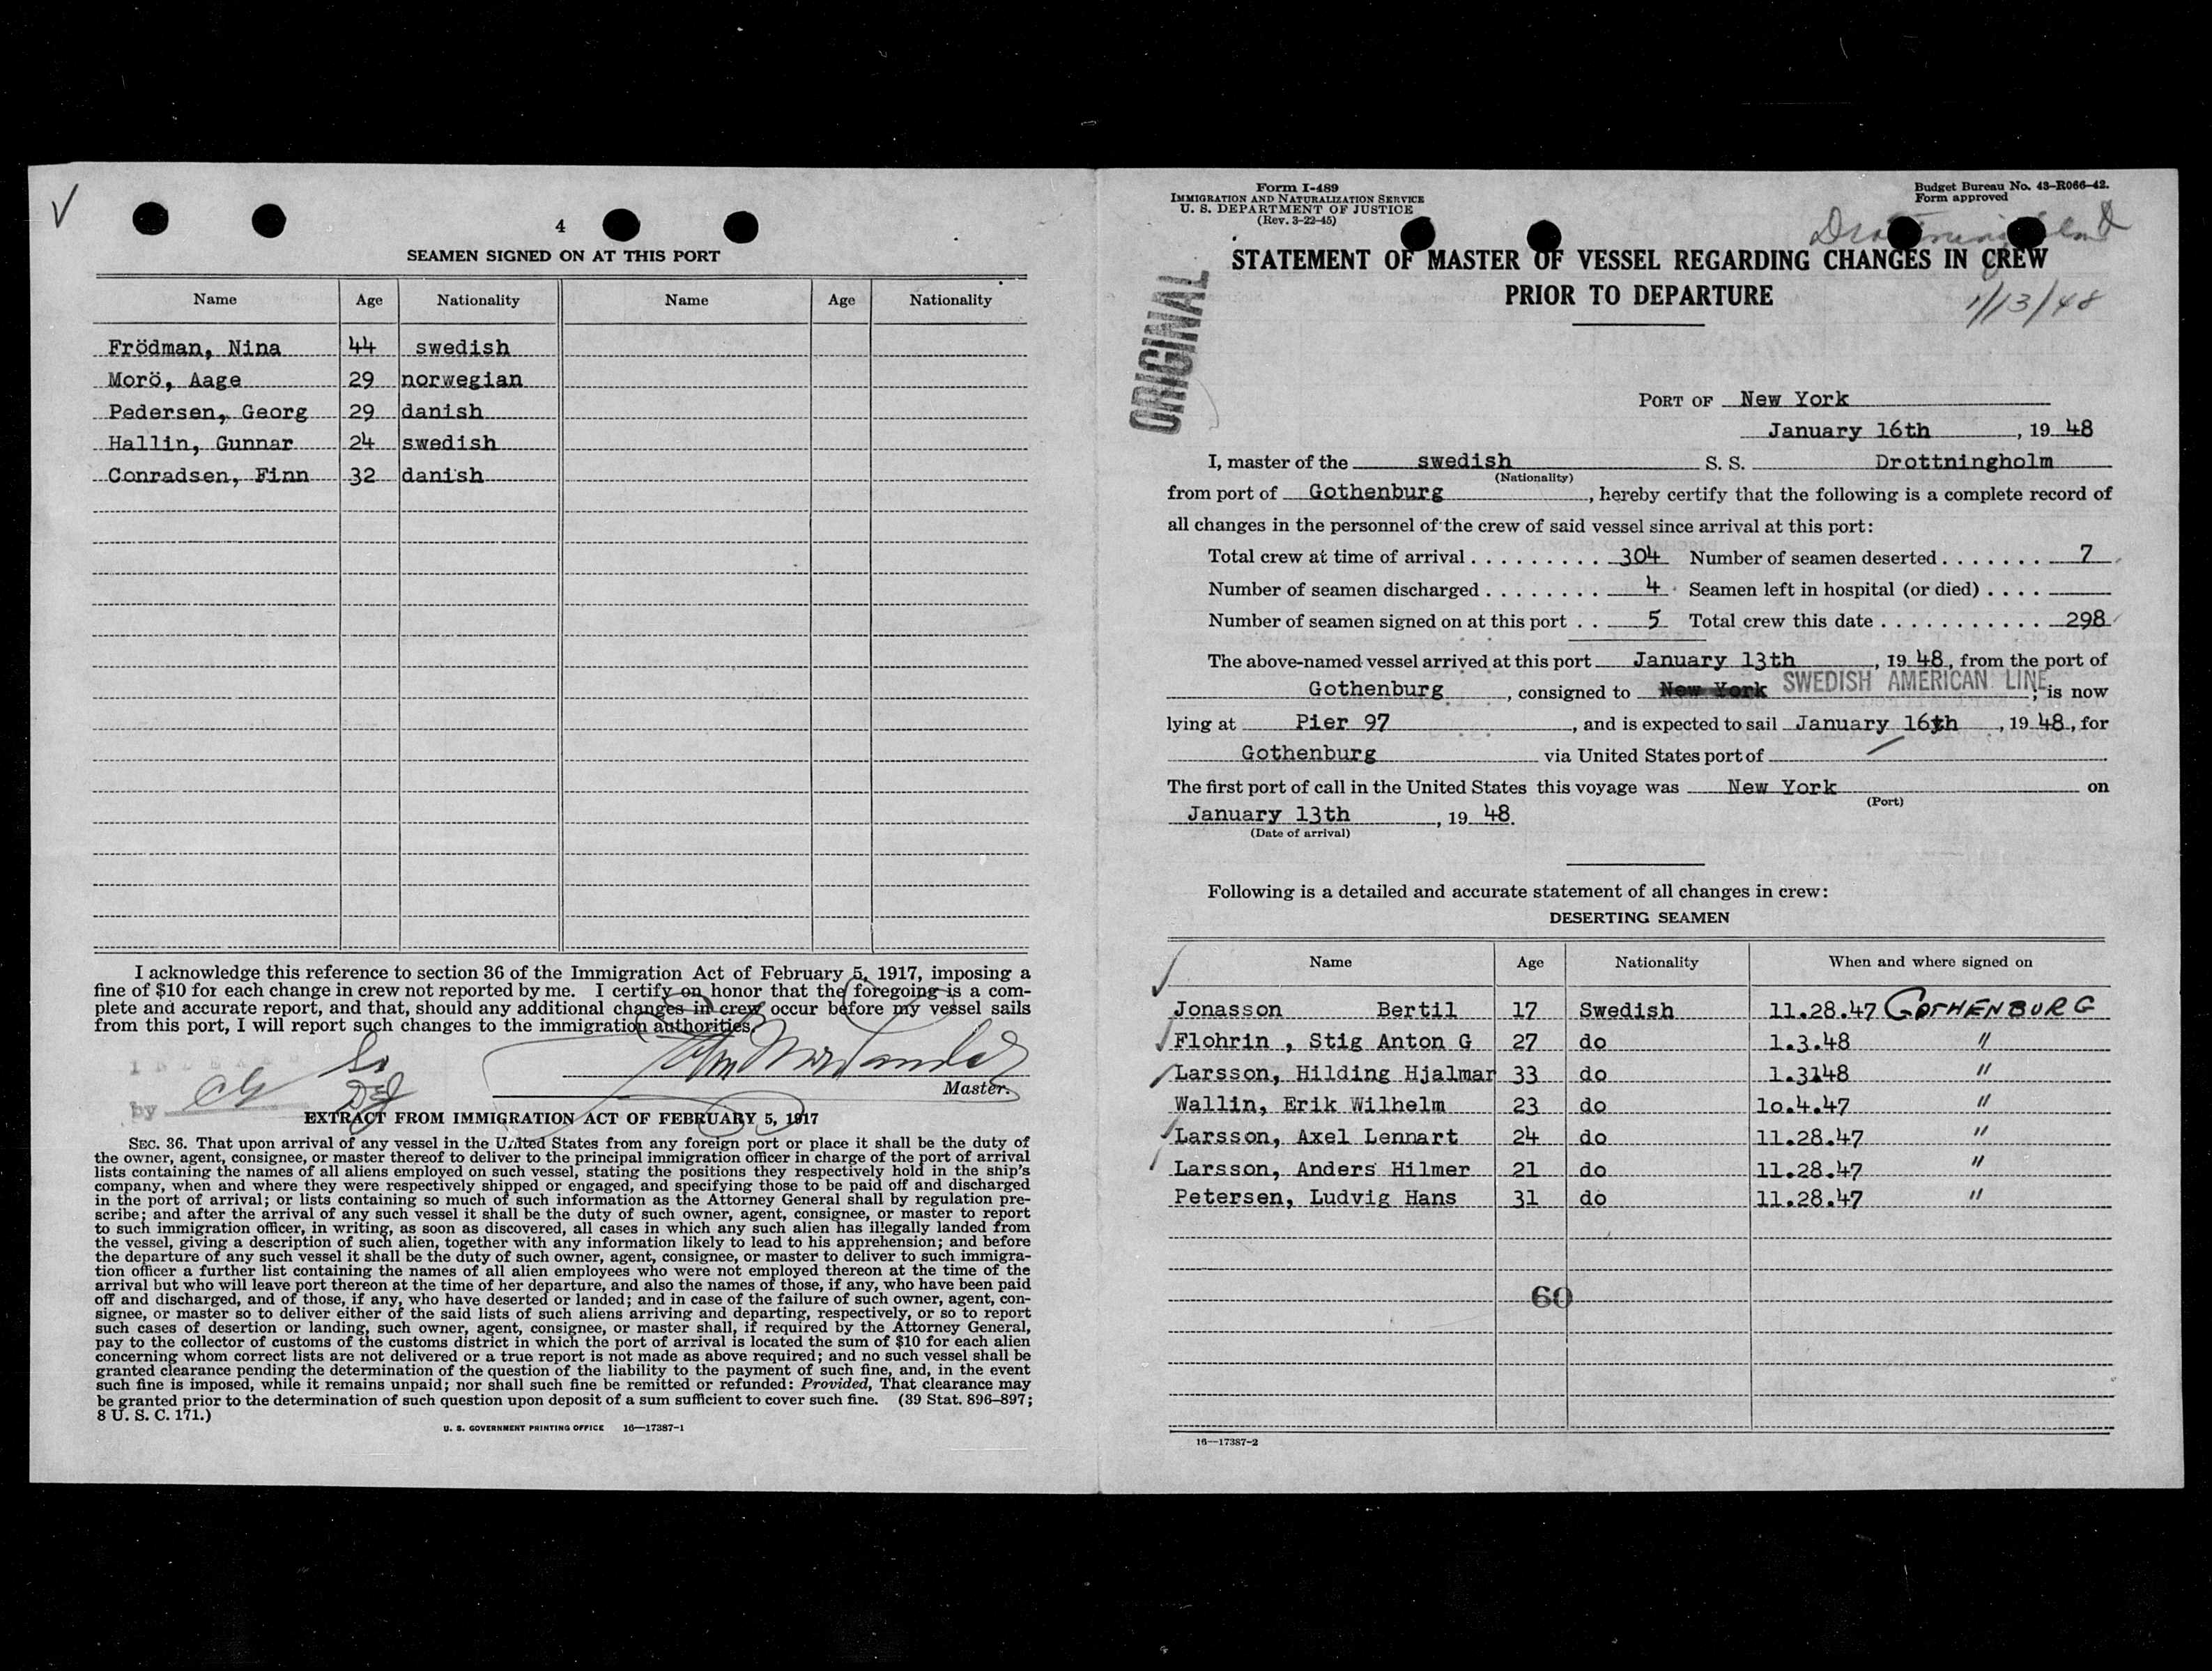 4
SEAMEN SIGNED ON AT THIS PORT
Name Age Nationality Name Age Nationality
Frödman, Nina 44 swedish
Morö, Aage 29 norwegian
Pedersen, Georg 29 danish
Hallin, Gunnar 24 swedish
Conradsen, Finn 32 danish
I acknowledge this reference to section 36 of the Immigration Act of February 5, 1917, imposing a
fine of $10 for each change in crew not reported by me. I certify on honor that the foregoing is a com-
plete and accurate report, and that, should any additional changes in crew occur before my vessel sails
from this port, I will report such changes to the immigration authorities.
Master.
by
EXTRACT FROM IMMIGRATION ACT OF FEBRUARY 5, 1917
SEC. 36. That upon arrival of any vessel in the United States from any foreign port or place it shall be the duty of
the owner, agent, consignee, or master thereof to deliver to the principal immigration officer in charge of the port of arrival
lists containing the names of all aliens employed on such vessel, stating the positions they respectively hold in the ship's
company, when and where they were respectively shipped or engaged, and specifying those to be paid off and discharged
in the port of arrival; or lists containing so much of such information as the Attorney General shall by regulation pre-
scribe; and after the arrival of any such vessel it shall be the duty of such owner, agent, consignee, or master to report
to such immigration officer, in writing, as soon as discovered, all cases in which any such alien has illegally landed from
the vessel, giving a description of such alien, together with any information likely to lead to his apprehension; and before
the departure of any such vessel it shall be the duty of such owner, agent, consignee, or master to deliver to such immigra-
tion officer a further list containing the names of all alien employees who were not employed thereon at the time of the
arrival but who will leave port thereon at the time of her departure, and also the names of those, if any, who have been paid
off and discharged, and of those, if any, who have deserted or landed; and in case of the failure of such owner, agent, con-
signee, or master so to deliver either of the said lists of such aliens arriving and departing, respectively, or so to report
such cases of desertion or landing, such owner, agent, consignee, or master shall, if required by the Attorney General,
pay to the collector of customs of the customs district in which the port of arrival is located the sum of $10 for each alien
concerning whom correct lists are not delivered or a true report is not made as above required; and no such vessel shall be
granted clearance pending the determination of the question of the liability to the payment of such fine, and, in the event
such fine is imposed, while it remains unpaid; nor shall such fine be remitted or refunded: Provided, That clearance may
be granted prior to the determination of such question upon deposit of a sum sufficient to cover such fine. (39 Stat. 896–897;
8 U. S. C. 171.)
U. S. GOVERNMENT PRINTING OFFICE 16—17387-1
Form I-489
IMMIGRATION AND NATURALIZATION SERVICE
U. S. DEPARTMENT OF JUSTICE
(Rev. 3-22-45)
Budget Bureau No. 43-R066-42.
Form approved
Drottningholm
STATEMENT OF MASTER OF VESSEL REGARDING CHANGES IN CREW
PRIOR TO DEPARTURE
1/13/48
ORIGINAL
PORT OF New York
January 16th, 19 48
I, master of the swedish S. S. Drottningholm
(Nationality)
from port of Gothenburg, hereby certify that the following is a complete record of
all changes in the personnel of the crew of said vessel since arrival at this port:
Total crew at time of arrival . . . . . . . . . 304 Number of seamen deserted . . . . . . . 7
Number of seamen discharged . . . . . . . . 4 Seamen left in hospital (or died) . . . .
Number of seamen signed on at this port . . 5 Total crew this date . . . . . . . . . . . 298
The above-named vessel arrived at this port January 13th, 19 48, from the port of
Gothenburg, consigned to New York SWEDISH AMERICAN LINE; is now
lying at Pier 97, and is expected to sail January 16th, 19 48, for
Gothenburg via United States port of
The first port of call in the United States this voyage was New York on
(Port)
January 13th, 19 48.
(Date of arrival)
Following is a detailed and accurate statement of all changes in crew:
DESERTING SEAMEN
Name Age Nationality When and where signed on
Jonasson Bertil 17 Swedish 11.28.47 GOTHENBURG
Flohrin , Stig Anton G 27 do 1.3.48 "
Larsson, Hilding Hjalmar 33 do 1.3148 "
Wallin, Erik Wilhelm 23 do 10.4.47 "
Larsson, Axel Lennart 24 do 11.28.47 "
Larsson, Anders Hilmer 21 do 11.28.47 "
Petersen, Ludvig Hans 31 do 11.28.47 "
60
16—17387-2